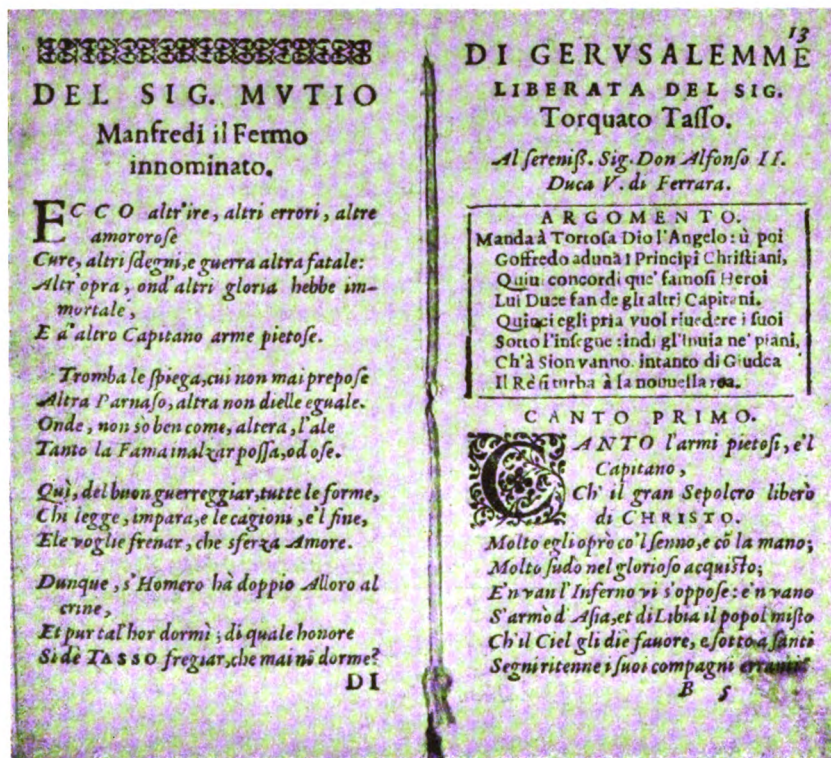 DEL SIG. MVTIO
Manfredi il Fermo
innominato.
ECCO altr'ire, altri errori, altre
amororose
Cure, altri sdegni, e guerra altra fatale:
Altr'opra, ond'altri gloria hebbe im-
mortale,
E d'altro Capitano arme pietose.
Tromba le spiega, cui non mai prepose
Altra Parnaso, altra non dielle eguale.
Onde, non so ben come, altera, l'ale
Tanto la Fama inalzar possa, od ose.
Quì, del buon guerreggiar, tutte le forme,
Chi legge, impara, e le cagioni, e'l fine,
E le voglie frenar, che sferza Amore.
Dunque, s'Homero hà doppio Alloro al
crine,
Et pur tal'hor dormì; di quale honore
Si dè TASSO fregiar, che mai nõ dorme?
DI
13
DI GERVSALEMME
LIBERATA DEL SIG.
Torquato Tasso.
Al sereniß. Sig. Don Alfonso II.
Duca V. di Ferrara.
ARGOMENTO.
Manda à Tortosa Dio l'Angelo: ù poi
Goffredo aduna i Principi Christiani,
Quiui concordi que' famosi Heroi
Lui Duce fan de gli altri Capitani.
Quinci egli pria vuol riuedere i suoi
Sotto l'insegne: indi gl'inuia ne' piani,
Ch'à Sion vanno. intanto di Giudea
Il Rè si turba à la nouuella rea.
CANTO PRIMO.
CANTO l'armi pietosi, e'l
Capitano,
Ch'il gran Sepolcro liberò
di CHRISTO.
Molto egli oprò co'l senno, e cõ la mano;
Molto sudò nel glorioso acquisto;
E'n van l'Inferno vi s'oppose: e'n vano
S'armò d'Asia, et di Libia il popol misto
Ch'il Ciel gli diè fauore, e sotto a santi
Segni ritenne i suoi compagni erranti
B 5